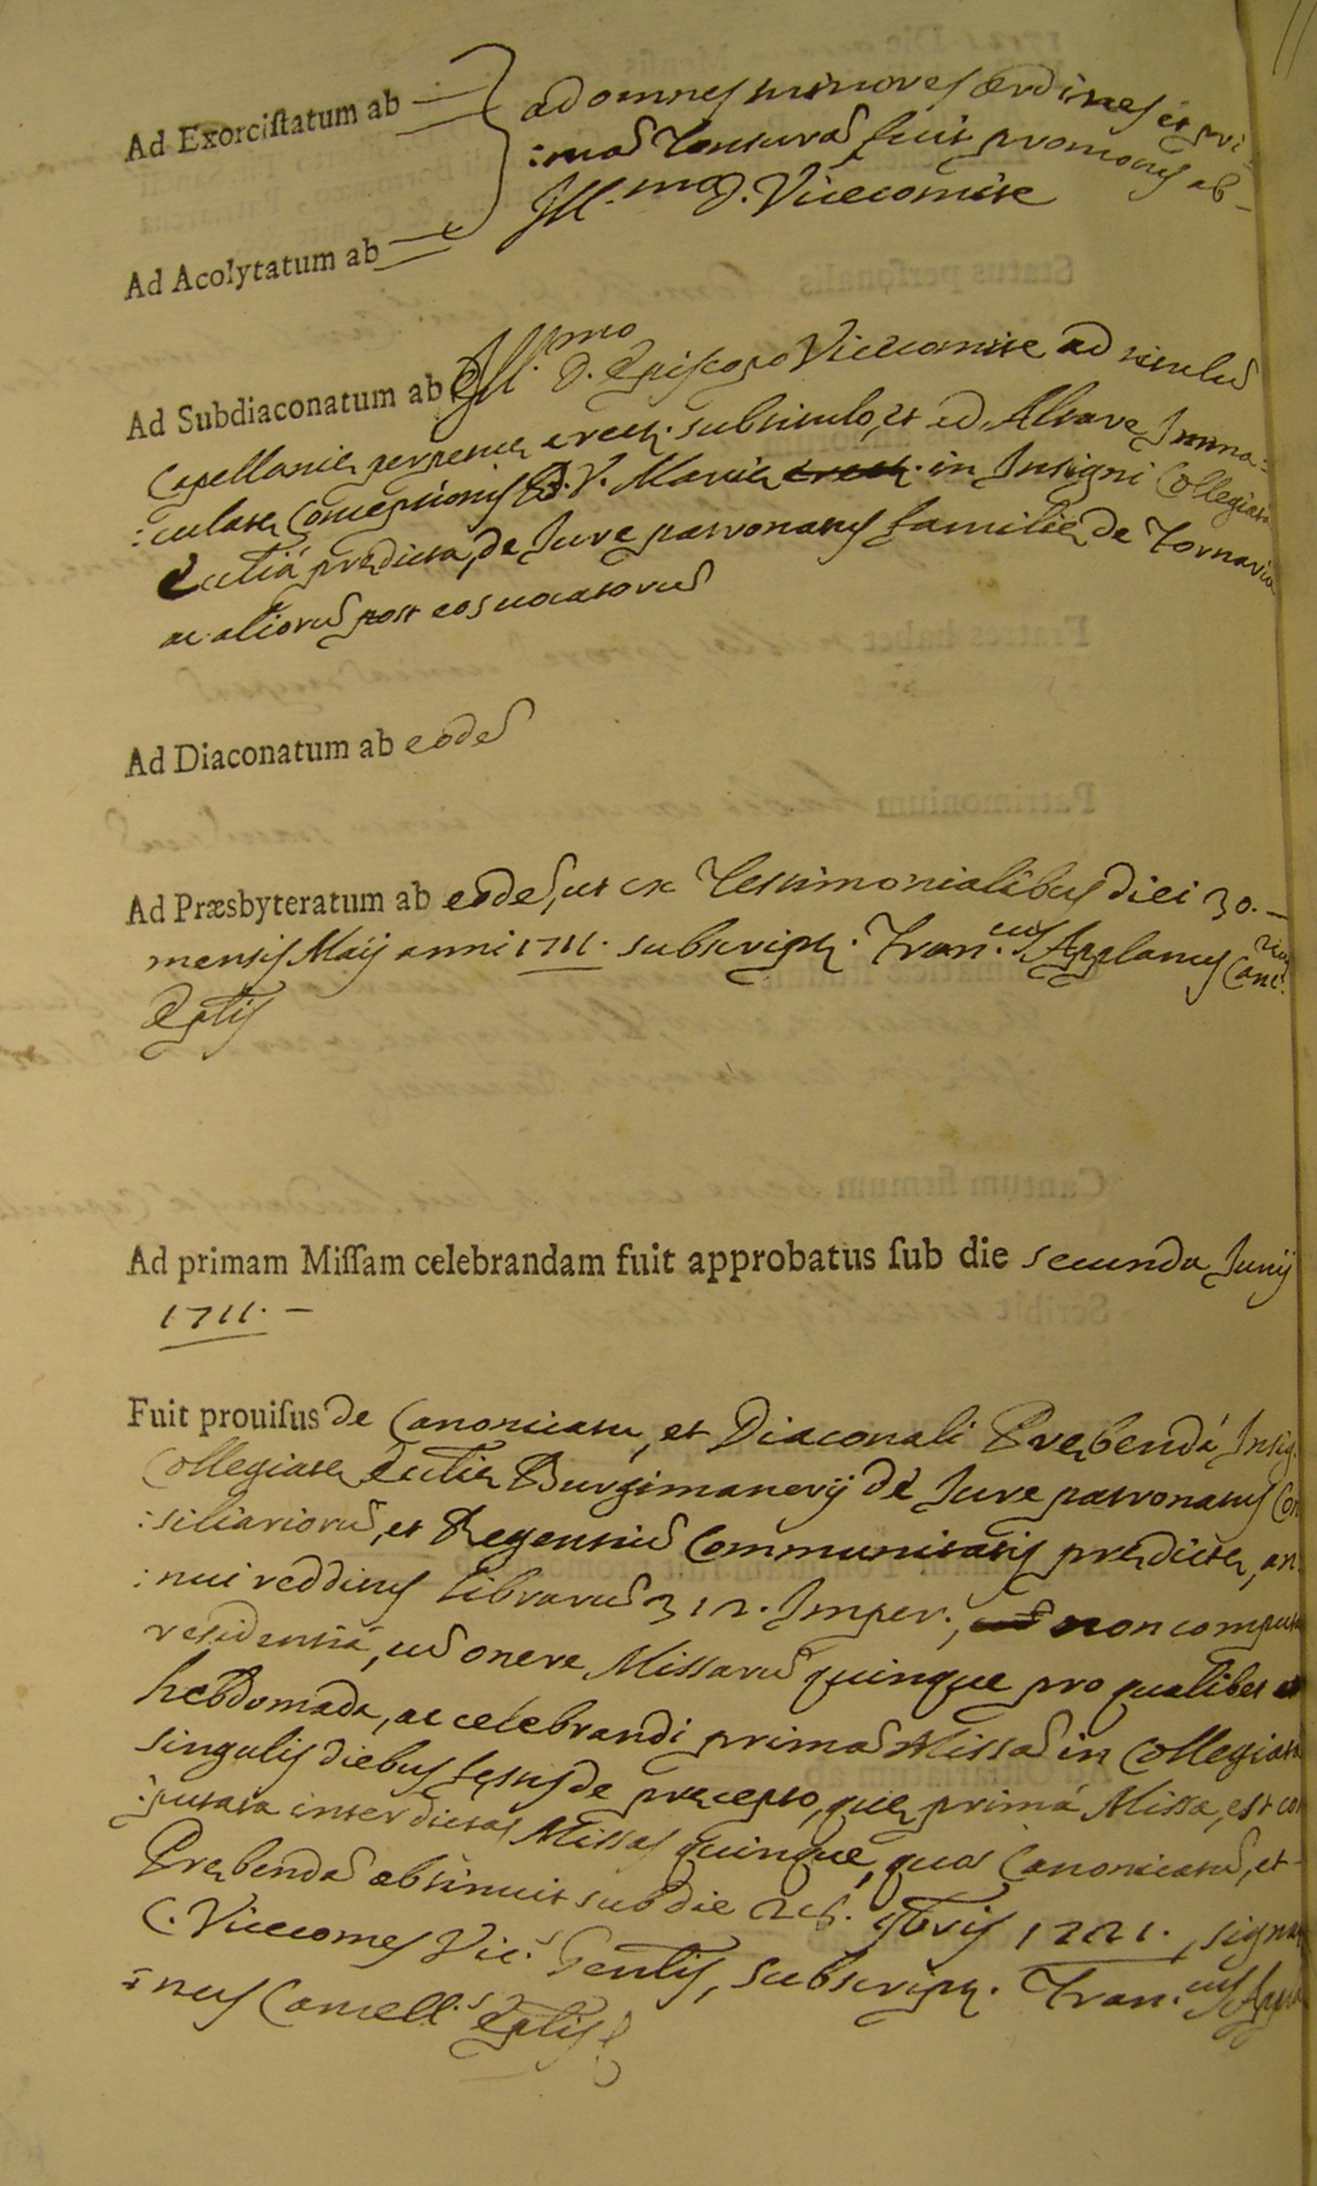 Ad Exorciſtatum ab
ad omnes minores ordines et pri-
:mā Tonsurā fuit promotus ab-
Ill.mo D. Vicecomite
Ad Acolytatum ab
Ad Subdiaconatum ab Ill.mo D. Episcopo Vicecomite ad titulū
Capellaniæ perpetuæ erect. sub titulo, et ad Altare Imma:
:culatæ Conceptionis B. V. Mariæ erect. in Insigni Collegiata
Ecclia prædicta, de Jure patronatus familiæ de Tornaria
ac aliorū post eos vocatorū
Ad Diaconatum ab eodē
Ad Præsbyteratum ab eodē, ut ex Testimonialibus diei 30.-
mensis Maij anni 1711. subscript. Fran.cus Applanus Canc.rius
Eplis
Ad primam Miſſam celebrandam fuit approbatus ſub die secunda Junij
1711.-
Fuit prouiſus de Canonicatu, et Diaconali Præbendá Insig.
Collegiatæ Eccliæ Burgimanerij de Jure patronatus Con
:siliariorū, et Regentiū Communitatis prædictæ, an
:nui redditus librarū 312. Imper., non computa
residentiá, cū onere Missarū quinque pro qualibet
hebdomada, ac celebrandi primā Missā in Collegiata
singulis diebus festis de præcepto, quæ primá Missa, est com
:putata inter dictas Missas quinque, quos Canonicatū, et-
Præbendā obtinuit sub die 26. 1721., signat
C. Vicecomes Vic.s Genlis, subscript. Fran.cus Appla
:nus Cancell.s Eplis